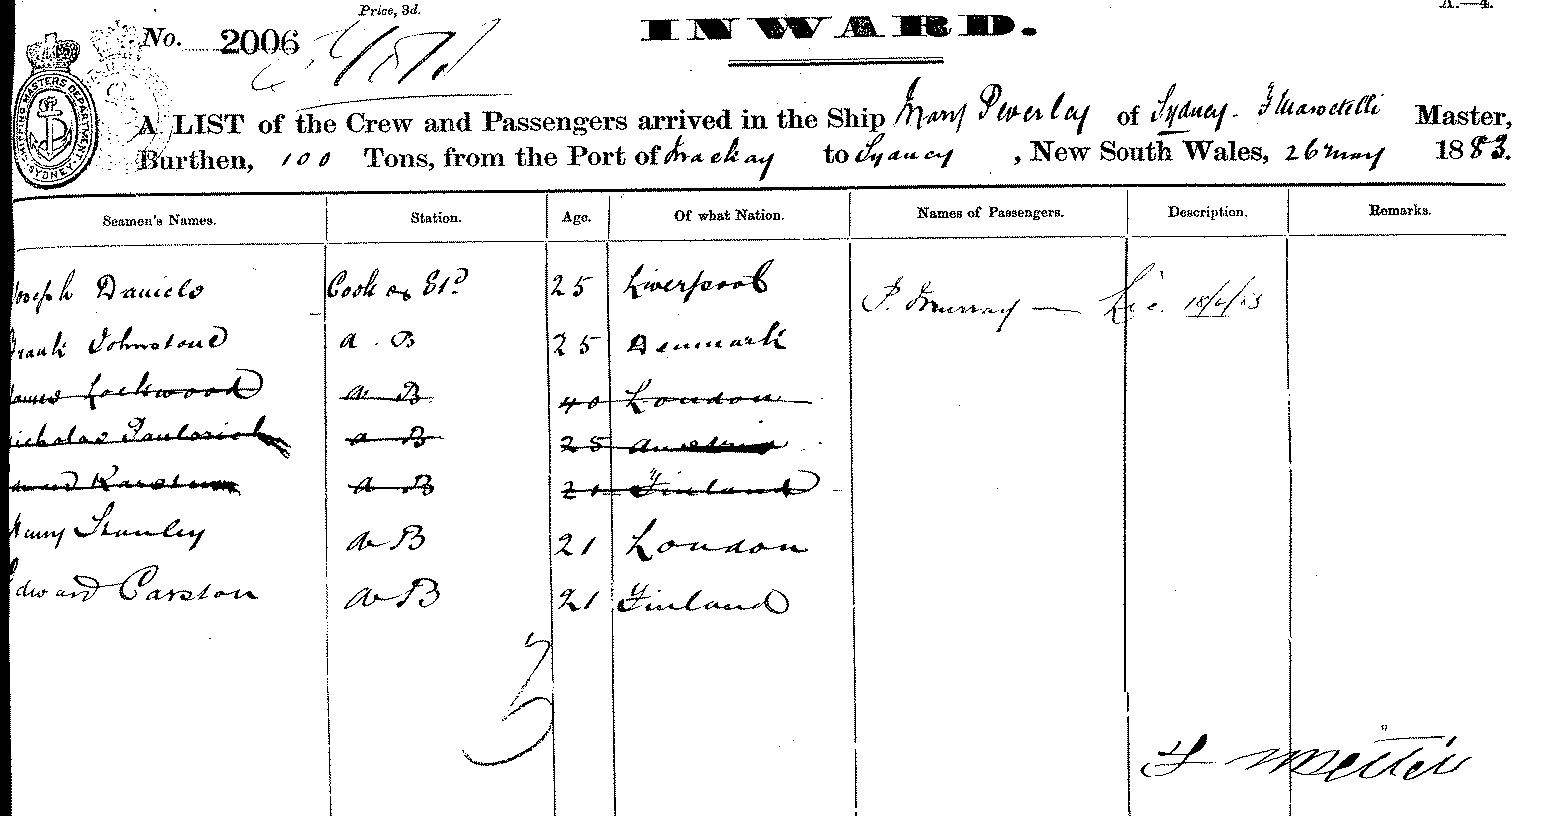 Price, 3d.
A.—4.
No. 2006
INWARD.
A LIST of the Crew and Passengers arrived in the Ship Mary Peverley of Sydney. Master,
Burthen, 100 Tons, from the Port of Mackay to Sydney, New South Wales, 26 May 1883.
Seamen's Names. Station. Age. Of what Nation. Names of Passengers. Description. Remarks.
Joseph Daniels Cook & Std 25 Liverpool P. Murray — Lic.
Frank Johnstone a. B 25 Denmark
James Lockwood a B 40 London
Nicholas a B 25 Austria
a B 21 Finland
Henry Stanley a B 21 London
Edward Carston a B 21 Finland
5